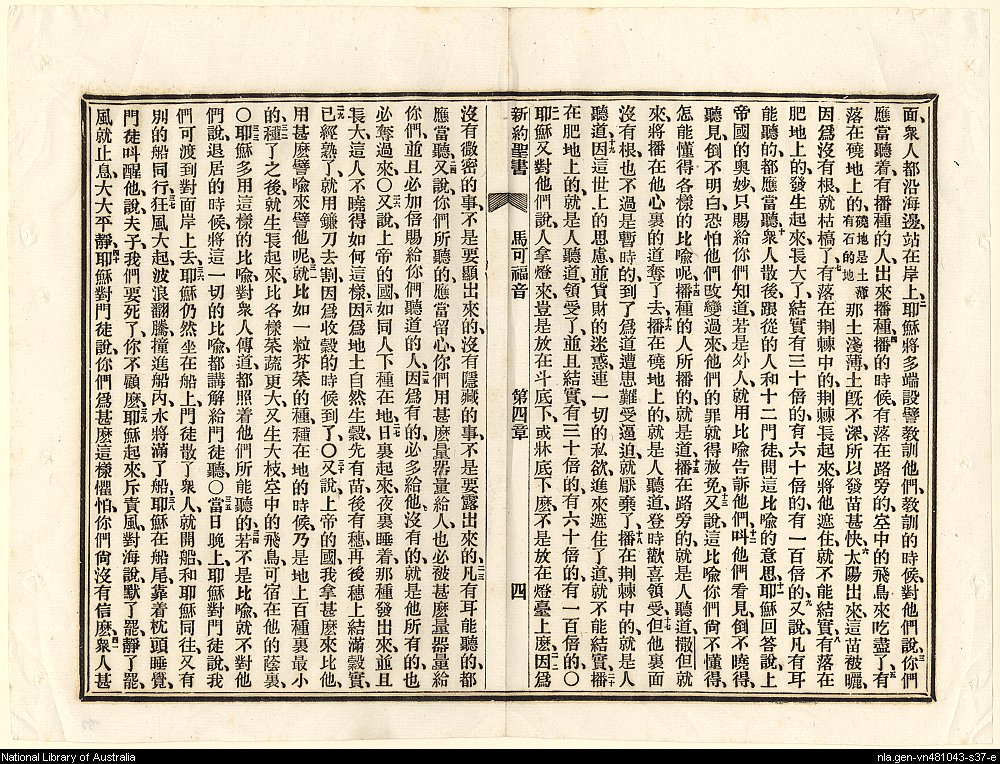 面、衆人都沿海邊、站在岸上、二耶穌將多多端設譬教訓他們、教訓的時候、對他們說、三你們
應當聽着、有播種的人出來播種、四播的時候、有落在路旁的、空中的飛鳥來吃盡了、五有
落在磽地上的、磽地是土薄有石的地那土淺薄、土旣不深、所以發苗甚快、六太陽出來這苗被曬、
因爲沒有根、就枯槁了、七有落在荆棘中的、荆棘長起來、將他遮住、就不能結實、八有落在
肥地上的、發生起來、長大了、結實有三十倍的、有六十倍的、有一百倍的、九又說、凡有耳
能聽的、都應當聽、十衆人散後、跟從的人和十二門徒、問這比喩的意思、十一耶穌回答說、上
帝國的奧妙、只賜給你們知道、若是外人、就用比喩告訴他們、十二叫他們看見、倒不曉得、
聽見、倒不明白、恐怕他們改變過來、他們的罪就得赦免、十三又說、這比喩你們尙不懂得、
怎能懂得各樣的比喩呢、十四播種的人所播的、就是道、十五播在路旁的、就是人聽道、撒但就
來將播在他心裏的道奪了去、十六播在磽地上的、就是人聽道、登時歡喜領受、十七但他裏面
沒有根、也不過是暫時的、到了爲道遭患難受逼迫、就厭棄了、十八播在荆棘中的、就是人
聽道、十九因這世上的思慮、並貨財的迷惑、連一切的私欲、進來遮住了道、就不能結實、二十播
在肥地上的、就是人聽道領受了、並且結實、有三十倍的、有六十倍的、有一百倍的、〇
二一耶穌又對他們說、人拿燈來、豈是放在斗底下、或牀底下麽、不是放在燈臺上麽、二二因爲
新約聖書 馬可福音 第四章 四
沒有微密的事、不是要顯出來的、沒有隱藏的事、不是要露出來的、二三凡有耳能聽的、都
應當聽、二四又說、你們所聽的、應當留心、你們用甚麽量器量給人、也必被甚麽量器量給
你們、並且必加倍賜給你們聽道的人、二五因爲有的、必多給他、沒有的、就是他所有的、也
必奪過來、〇二六又說、上帝的國、如同人下種在地、二七日裏起來、夜裏睡着、那種發出來、並且
長大、這人不曉得如何這樣、二八因爲地土自然生穀、先有苗、後有穗、再後穗上結滿穀實、
二九已經熟了、就用鐮刀去割、因爲收穀的時候到了、〇三十又說、上帝的國、我拿甚麽來比他、
用甚麽譬喩來譬他呢、三一就比如一粒芥菜的種、種在地的時候、乃是地上百種裏最小
的、三二種了之後、就生長起來、比各樣菜蔬更大、又生大枝、空中的飛鳥可宿在他的蔭裏、
〇三三耶穌多用這樣的比喩、對衆人傳道、都照着他們所能聽的、三四若不是比喩、就不對他
們說、退居的時候、將這一切的比喩、都講解給門徒聽、〇三五當日晚上、耶穌對門徒說、我
們可渡到對面岸上去、三六耶穌仍然坐在船上、門徒散了衆人、就開船和耶穌同往、又有
別的船同行、三七狂風大起、波浪翻騰、撞進船內、水將滿了船、三八耶穌在船尾、靠着枕頭睡覺、
門徒叫醒他說、夫子、我們要死了、你不顧麽、三九耶穌起來、斥責風、對海說、默了罷、靜了罷、
風就止息、大大平靜、四十耶穌對門徒說、你們爲甚麽這樣懼怕、你們尙沒有信麽、四一衆人甚
National Library of Australia
nla.gen-vn481043-s37-e